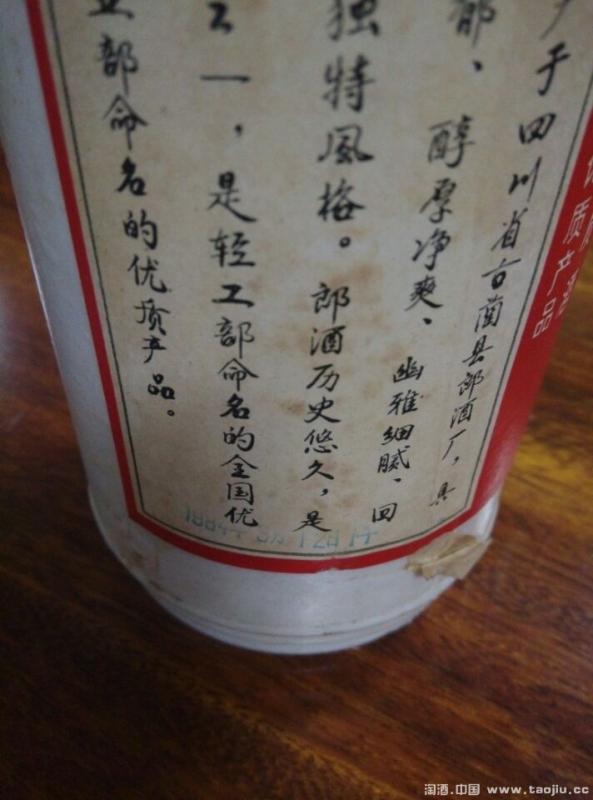 于四川省古蔺县郎酒厂，具
郁、醇厚净爽、幽雅细腻、回
独特風格。郎酒历史悠久，是
一，是轻工部命名的全国优
部命名的优质产品。
质产品
淘酒.中国 www.taojiu.cc